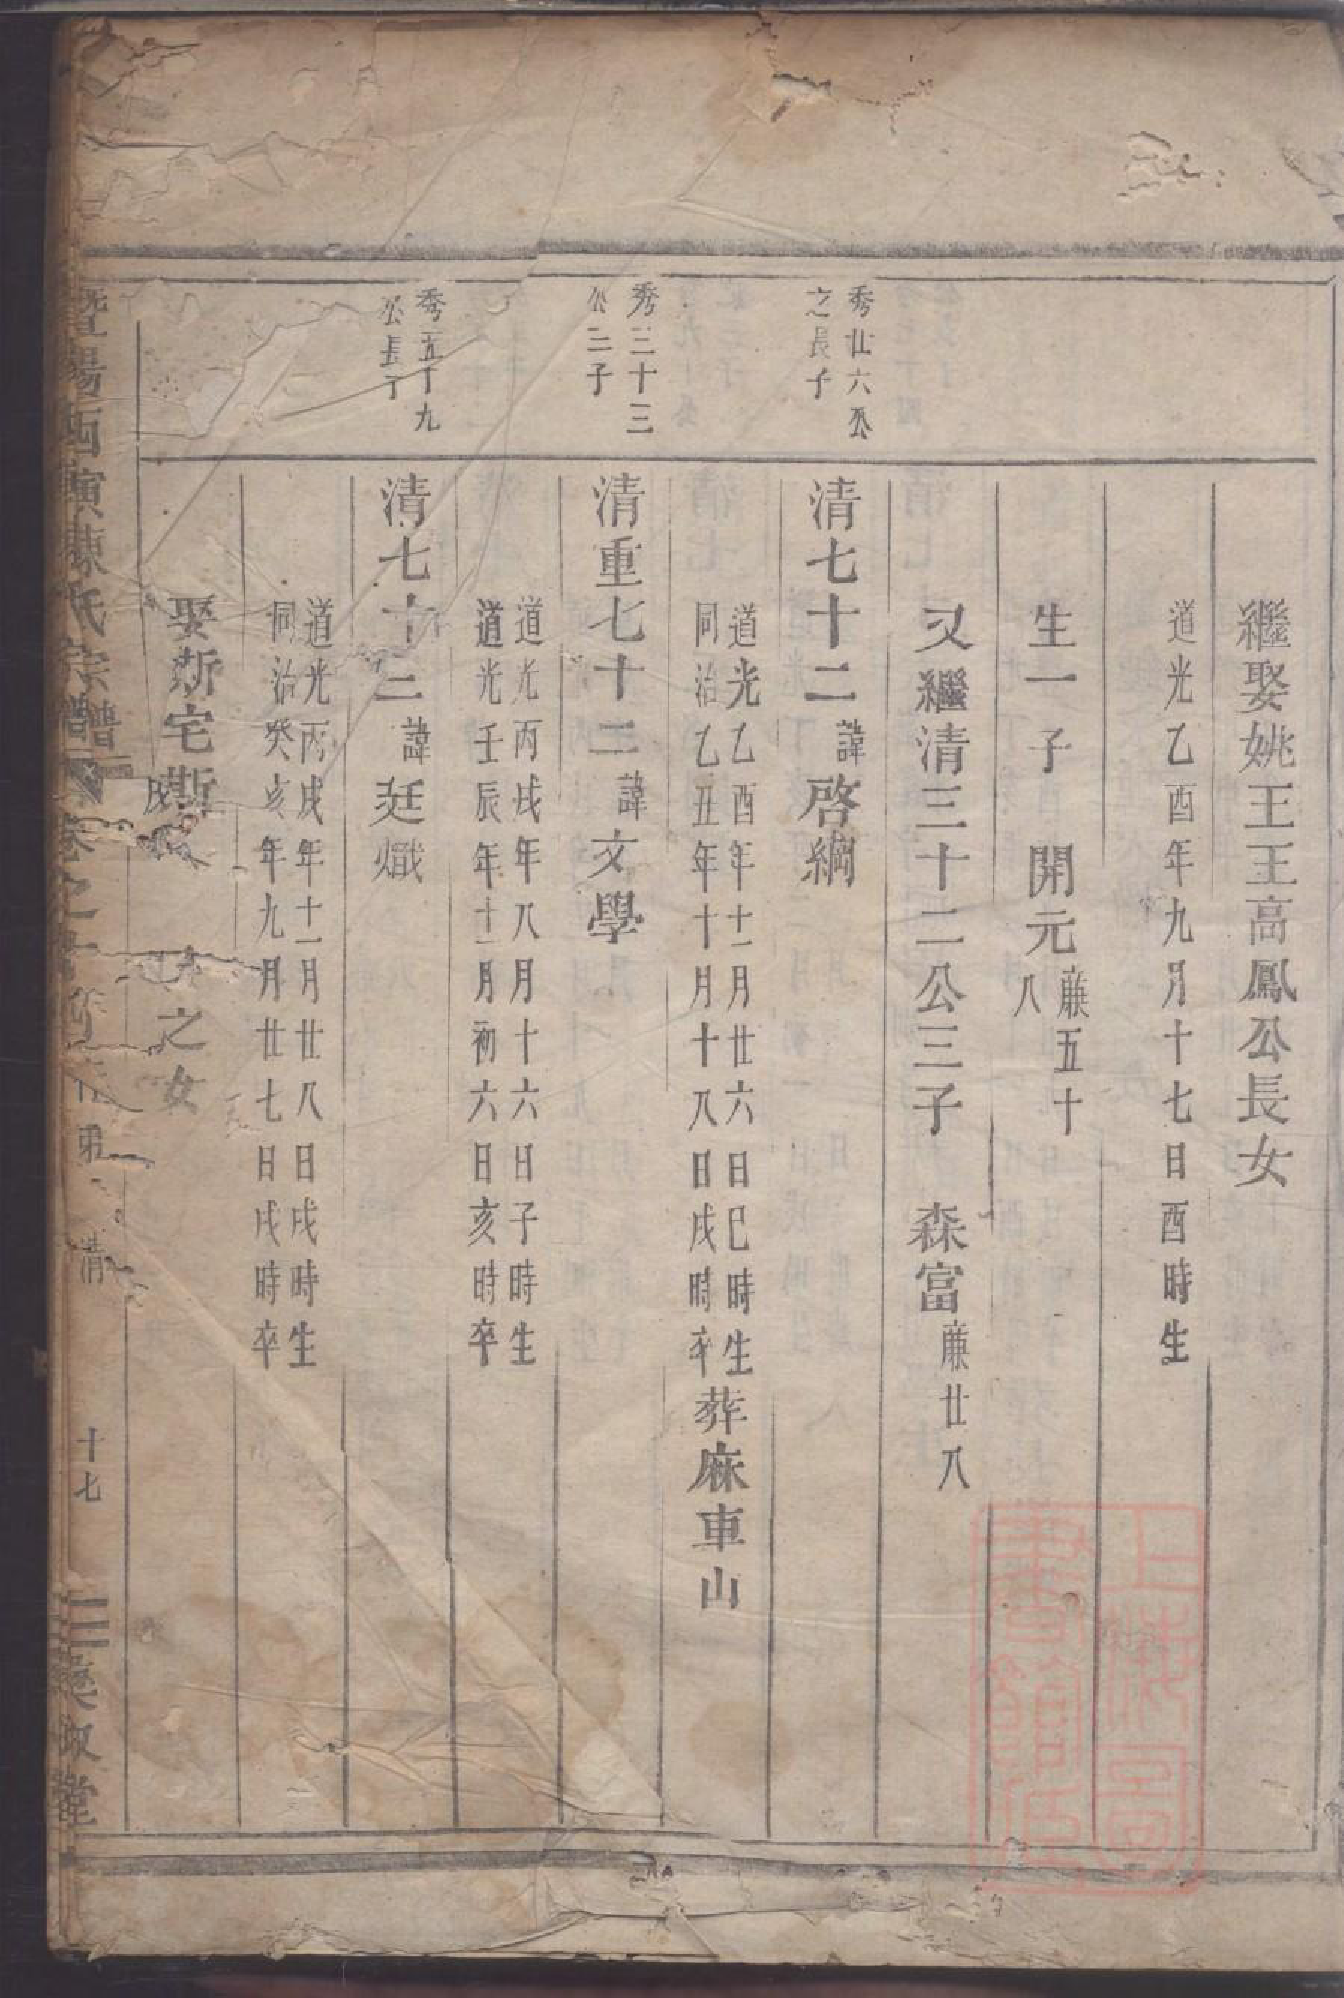 繼娶姚王王高鳳公長女
道光乙酉年九月十七日酉時生
生一子 開元 廉五十八
又繼清三十二公三子 森富 廉廿八
秀廿六公之長子
清七十二 諱 啓綱
道光乙酉年十一月廿六日巳時生
同治乙丑年十月十八日戌時卒
葬麻車山
秀三十三公二子
清重七十二 諱 文學
道光丙戌年八月十六日子時生
道光壬辰年十一月初六日亥時卒
秀五十九公長子
清七十二 諱 廷熾
道光丙戌年十一月廿八日戌時生
同治癸亥年九月廿七日戌時卒
娶斯宅斯 之女
暨陽西演陳氏宗譜 卷之 清 十七 堂
上海圖書館藏